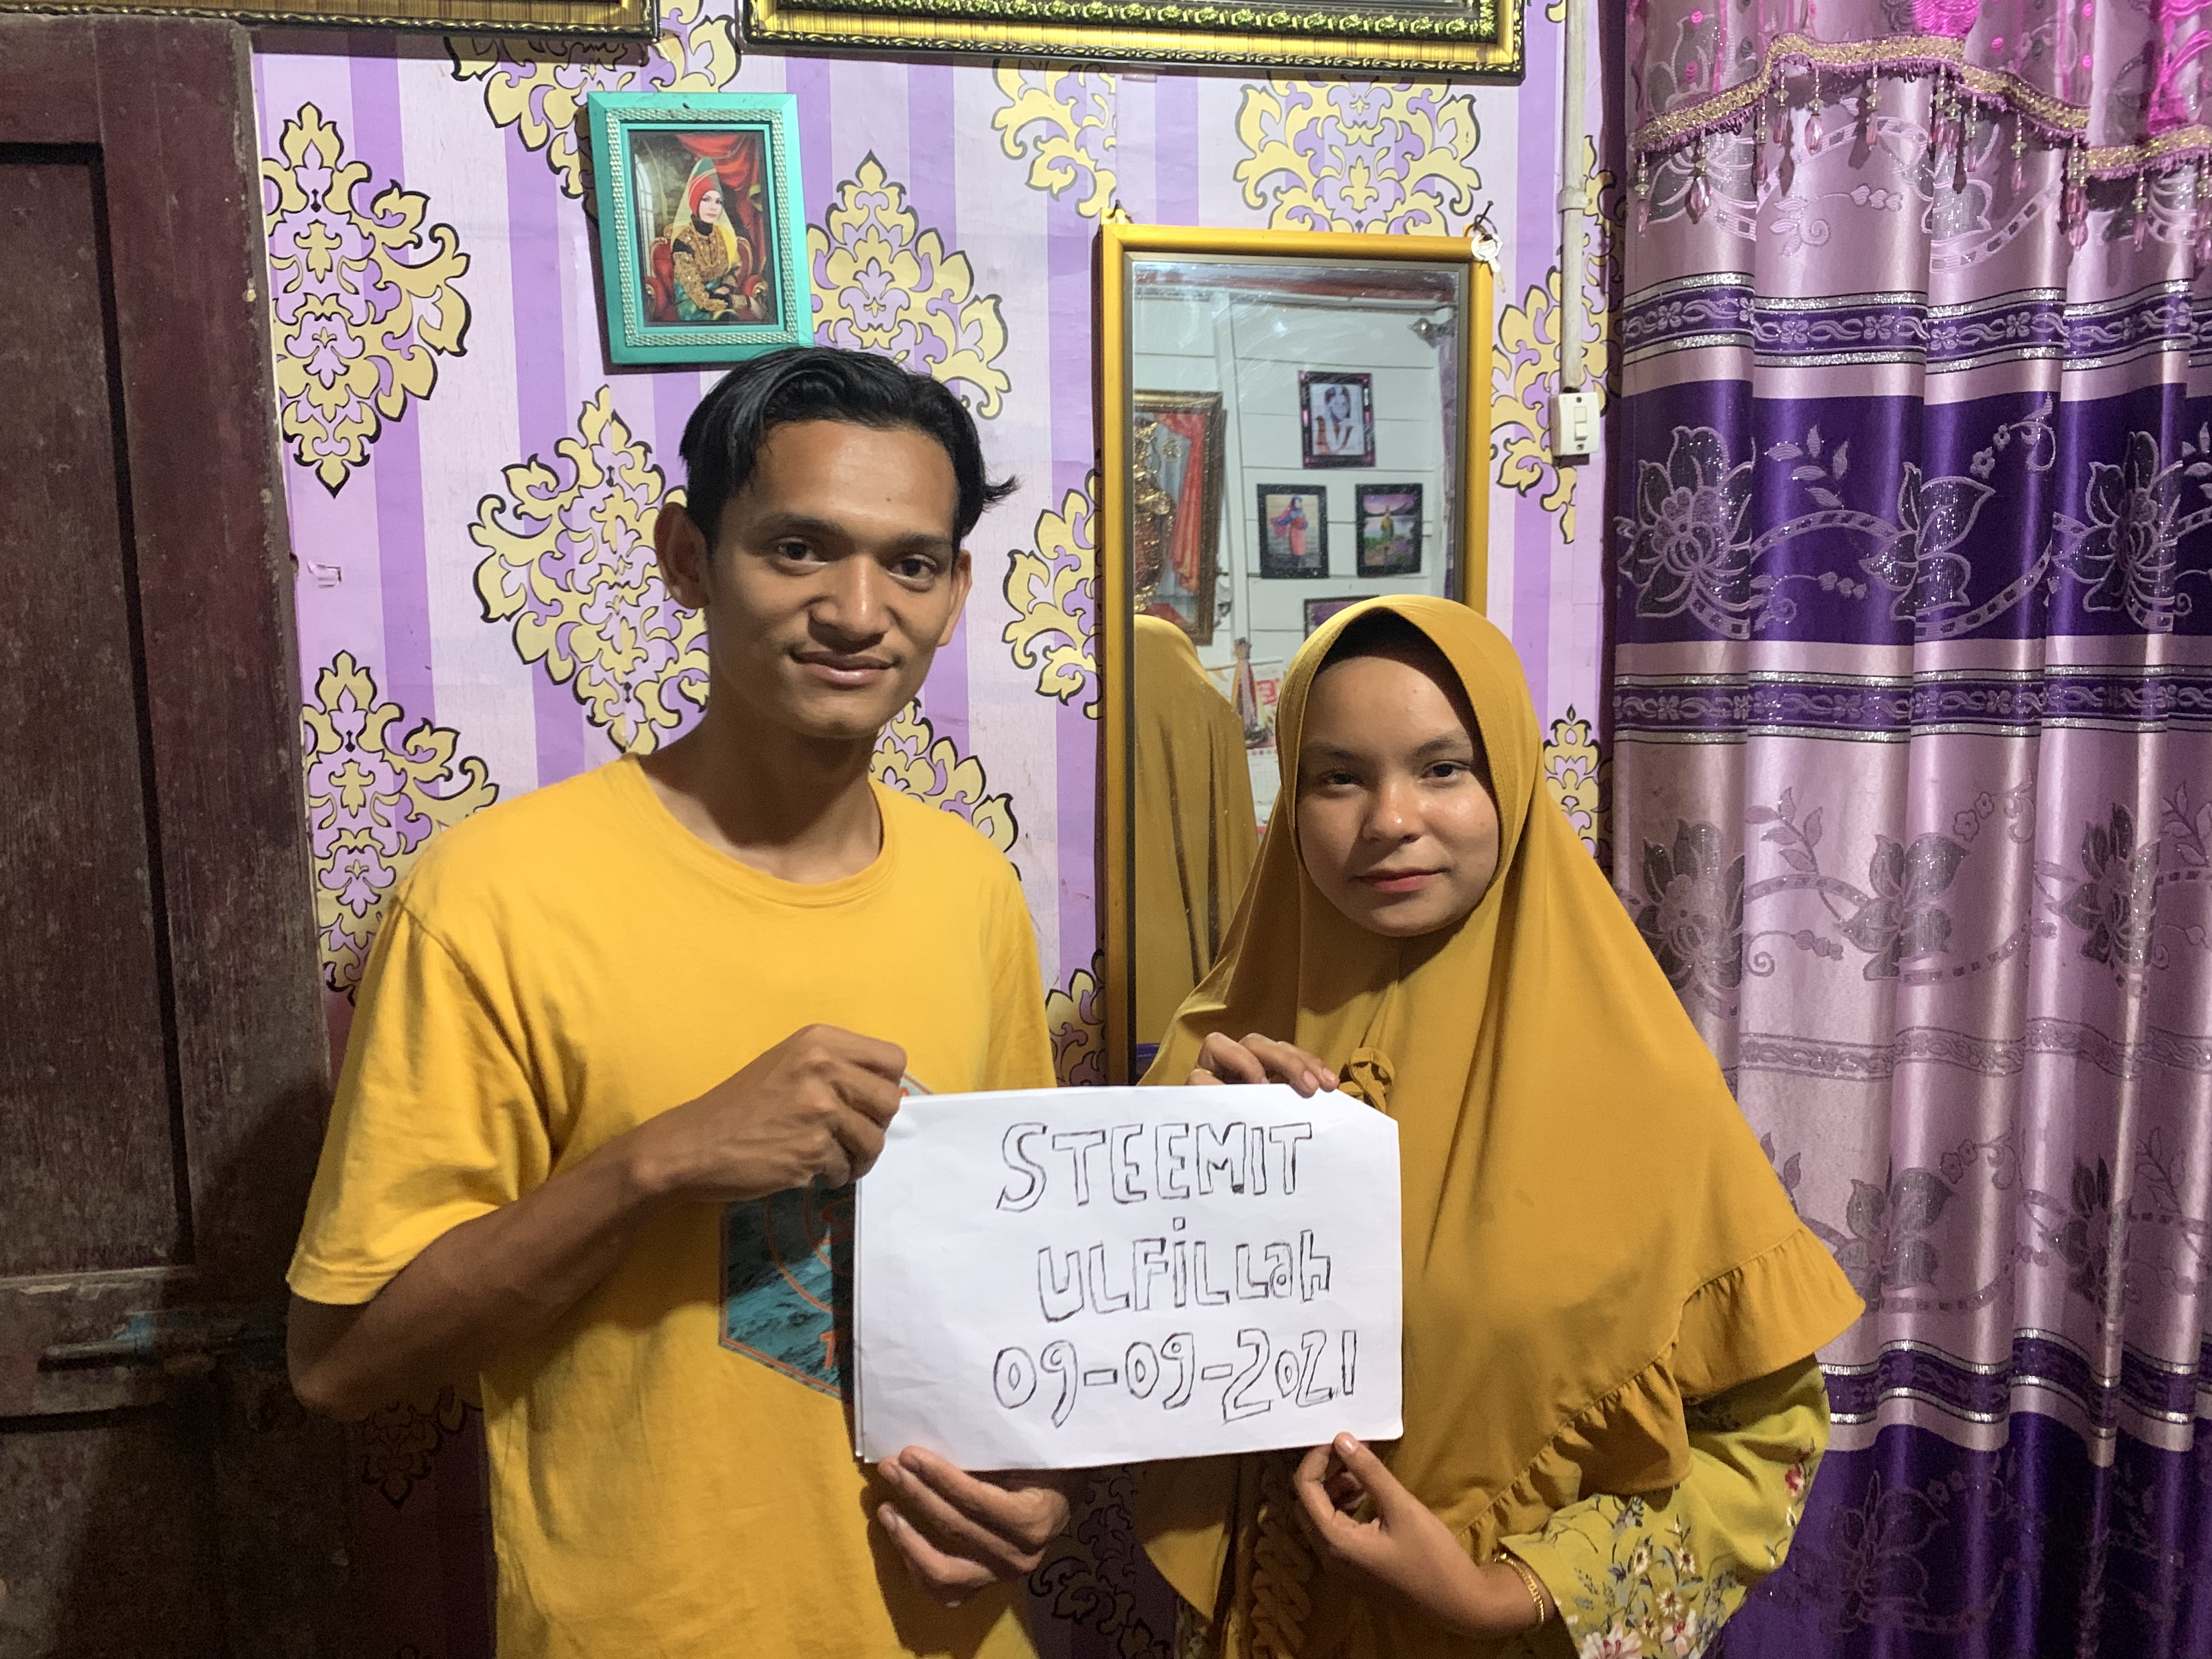 STEEMIT
ULFiLLah
09-09-2021